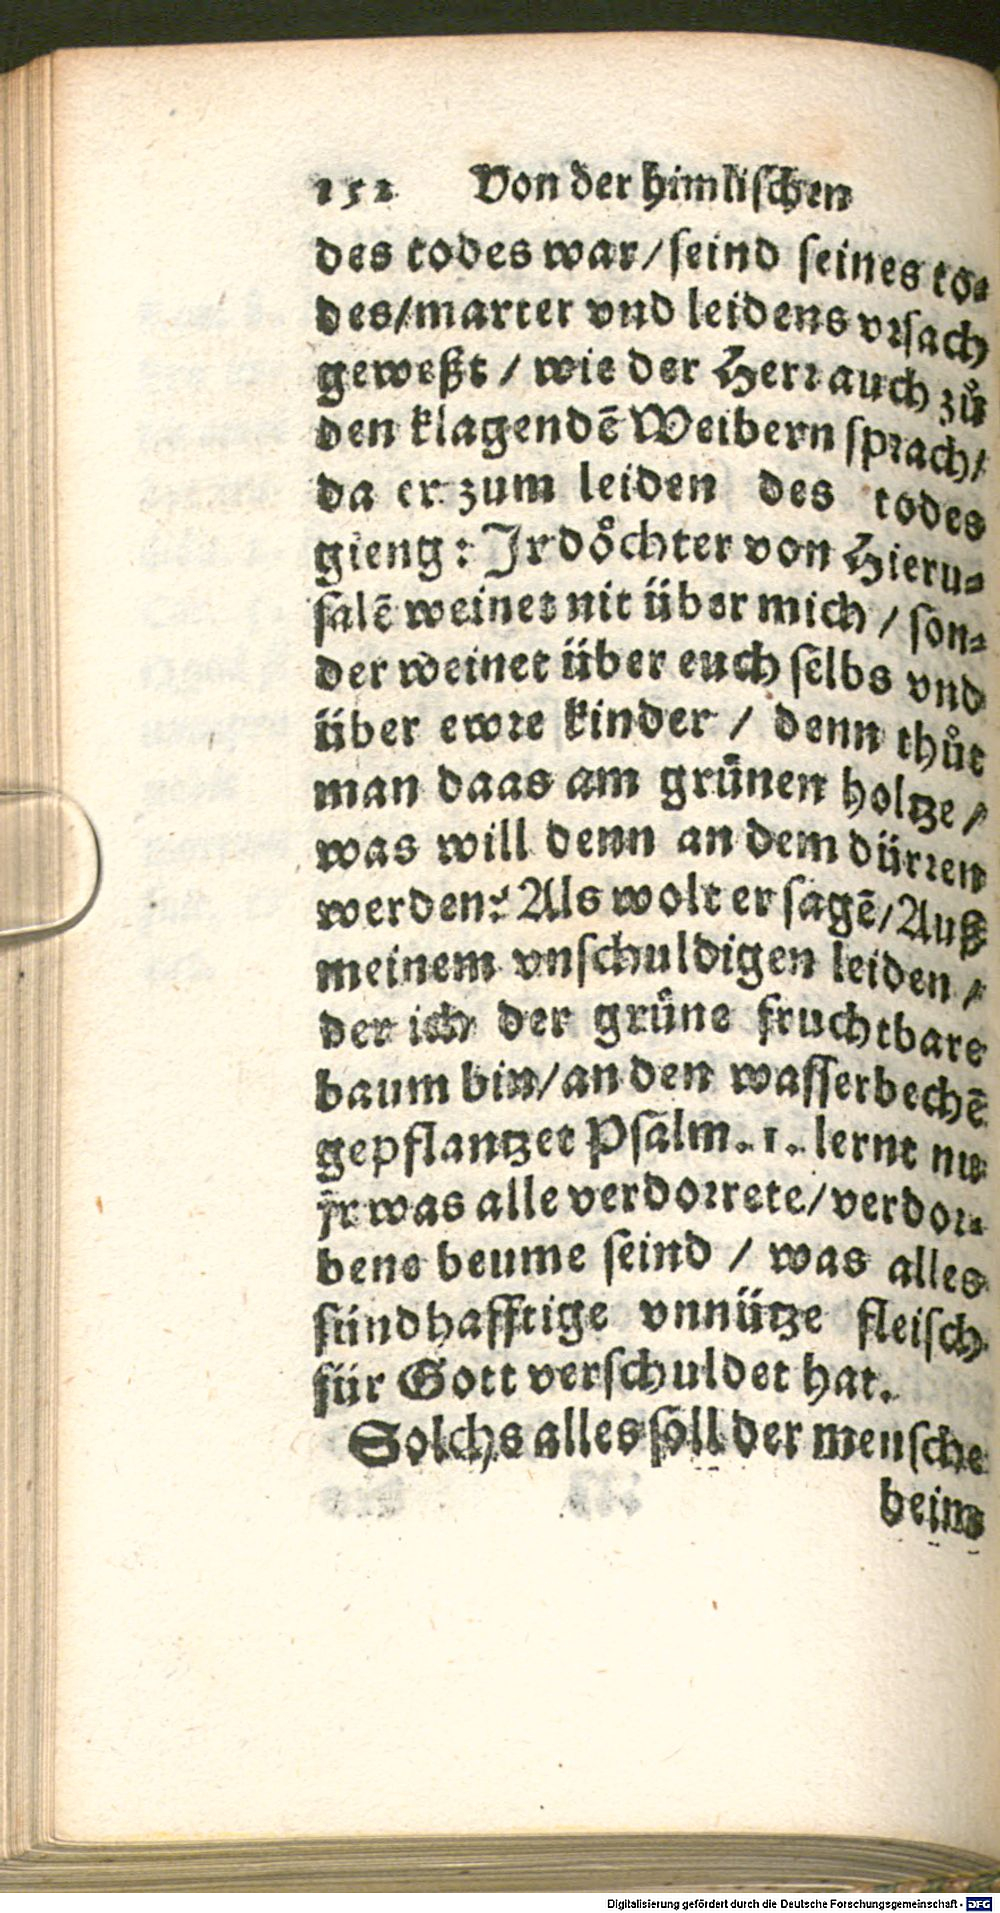 152 Von der himlischen
des todes war/seind seines to⸗
des/marter vnd leidens vrsach
geweßt / wie der Herr auch zů
den klagendē Weibern sprach/
da er zum leiden des todes
gieng: Jr dőchter von Hieru⸗
salē weinet nit über mich / son⸗
der weinet über euch selbs vnd
über ewre kinder / denn thůt
man daas am grünen holtze /
was will denn an dem dürren
werden? Als wolt er sagē/Auß
meinem vnschuldigen leiden /
der ich der grüne fruchtbare
baum bin/an den wasserbechē
gepflantzet Psalm. 1. lernt nu
jr was alle verdorrete/verdor⸗
bene beume seind / was alles
sündhafftige vnnütze fleisch
für Gott verschuldet hat.
Solchs alles soll der mensche
beim
Digitalisierung gefördert durch die Deutsche Forschungsgemeinschaft - DFG